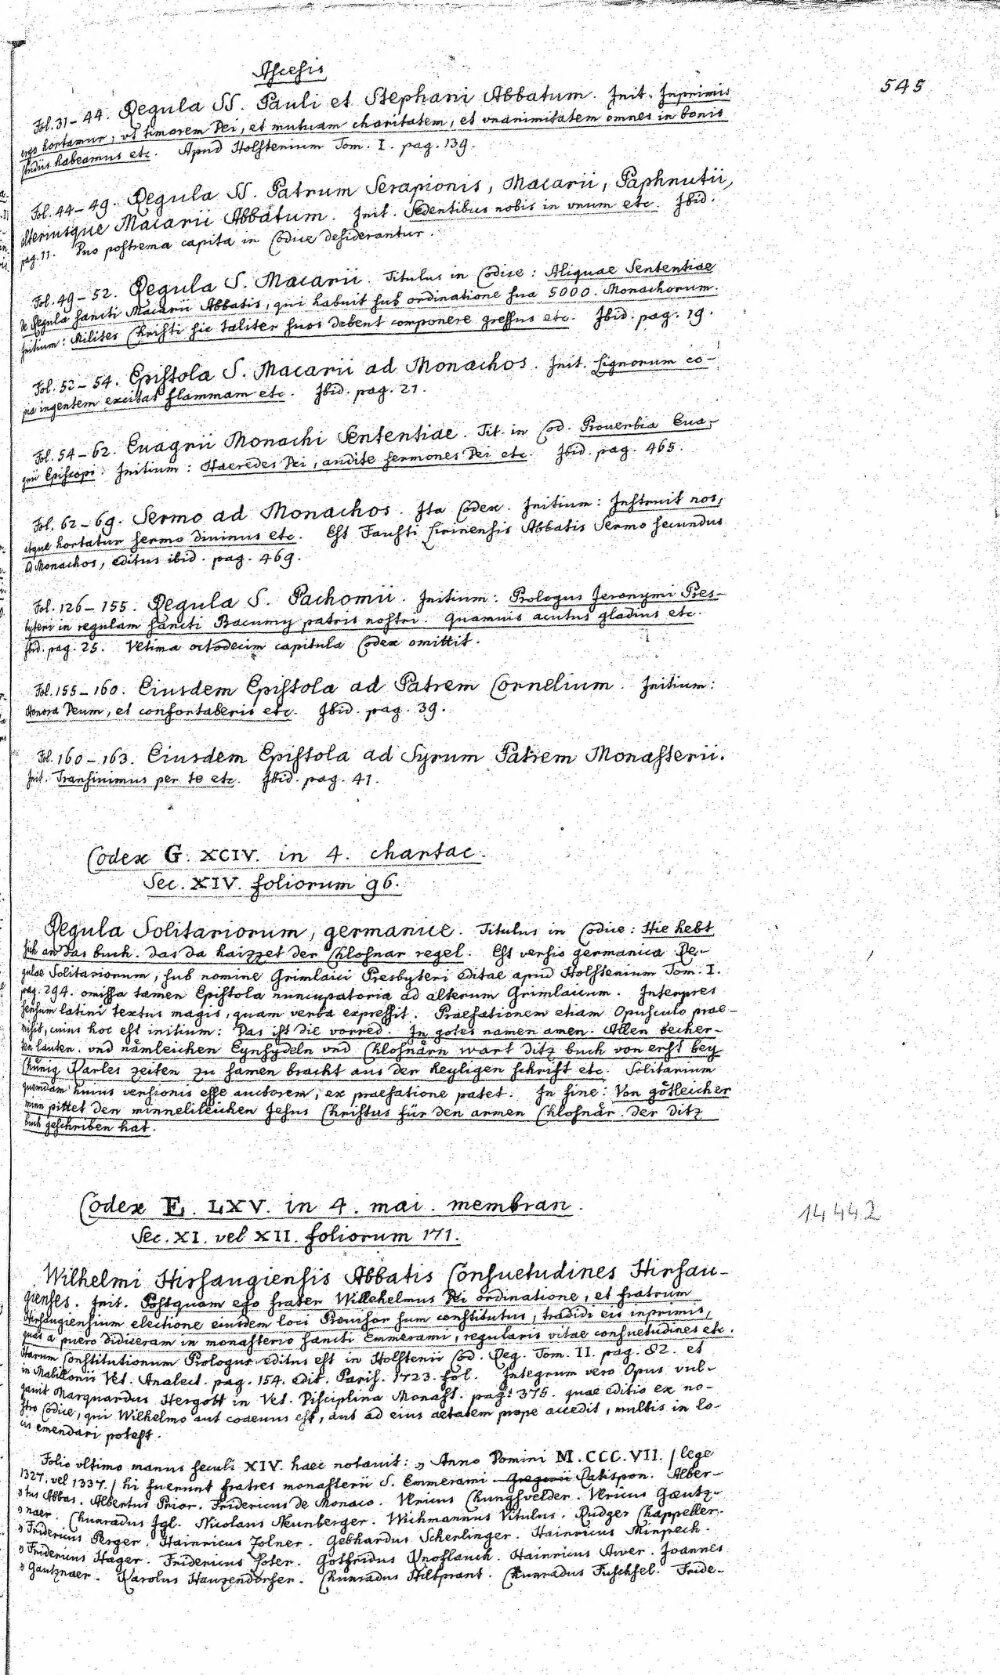 Ascesis
545
Fol. 31–44. Regula SS. Pauli et Stephani Abbatum. Init. Inprimis
ergo hortamur, ut timorem Dei, et mutuam charitatem, et unanimitatem omnes in bonis
studiis habeamus etc. Apud Holstenium Tom. I. pag. 139.
Fol. 44–49. Regula SS. Patrum Serapionis, Macarii, Paphnutii,
alteriusque Macarii Abbatum. Init. Sedentibus nobis in unum etc. Ibid.
pag. 11. Duo postrema capita in Codice desiderantur.
Fol. 49–52. Regula S. Macarii. Titulus in Codice: Aliquae Sententiae
de Regula sancti Macarii Abbatis, qui habuit sub ordinatione sua 5000. Monachorum.
Initium: Milites Christi sic taliter suos debent componere gressus etc. Ibid. pag. 19.
Fol. 52–54. Epistola S. Macarii ad Monachos. Init. Lignorum co–
pia ingentem excitat flammam etc. Ibid. pag. 21.
Fol. 54–62. Euagrii Monachi Sententiae. Tit. in Cod. Prouerbia Eua–
grii Episcopi: Initium: Haeredes Dei, audite sermones Dei etc. Ibid. pag. 465.
Fol. 62–69. Sermo ad Monachos. Ita Codex. Initium: Instruit nos,
atque hortatur sermo diuinus etc. Est Fausti Lirinensis Abbatis Sermo secundus
ad Monachos, editus ibid. pag. 469.
Fol. 126–155. Regula S. Pachomii. Initium: Prologus Jeronymi Pres–
byteri in regulam sancti Bacumy patris nostri. Quamuis acutus gladius etc.
Ibid. pag. 25. Vltima octodecim capitula Codex omittit.
Fol. 155–160. Eiusdem Epistola ad Patrem Cornelium. Initium:
Honora Deum, et confortaberis etc. Ibid. pag. 39.
Fol. 160–163. Eiusdem Epistola ad Syrum Patrem Monasterii.
Init. Transiuimus per te etc. Ibid. pag. 41.
Codex G. XCIV. in 4. chartac.
Sec. XIV. foliorum 96.
Regula Solitariorum, germanice. Titulus in Codice: Hie hebt
sich an das buch. das da haizzet der Chlosnar regel. Est versio germanica Re–
gulae Solitariorum, sub nomine Grimlaici Presbyteri editae apud Holstenium Tom. I.
pag. 294. omissa tamen Epistola nuncupatoria ad alterum Grimlaicum. Interpres
sensum latini textus magis, quam verba expressit. Praefationem etiam Opusculo prae–
misit, cuius hoc est initium: Das ist die vorred. In gotes namen amen. Allen becher–
ten lauten. vnd nämleichen Eynsydeln vnd Chlosnärn wart ditz buch von erst bey
Chünig Karles zeiten zu samen bracht aus der heyligen schrift etc. Solitarium
quemdam huius versionis esse auctorem, ex praefatione patet. In fine: Von götleicher
minn pittet den minnekleichen Jesus Christus für den armen Chlosnär. der ditz
buch geschriben hat.
Codex E. LXV. in 4. mai. membran.
14442
Sec. XI. vel XII. foliorum 171.
Wilhelmi Hirsaugiensis Abbatis Consuetudines Hirsau–
gienses. Init. Postquam ego frater Willehelmus Dei ordinatione, et fratrum
Hirsaugiensium electione eiusdem loci Prouisor sum constitutus, tradidi eis inprimis,
quas a puero didiceram in monasterio sancti Emmerami, regularis vitae consuetudines etc.
Harum Constitutionum Prologus editus est in Holstenii Cod. Reg. Tom. II. pag. 82. et
in Mabillonii Vet. Analect. pag. 154. edit. Paris. 1723. fol. Integrum vero Opus vul–
gauit Marquardus Hergott in Vet. Disciplina Monast. pag. 375. quae editio ex no–
stro Codice, qui Wilhelmo aut coaeuus est, aut ad eius aetatem prope accedit, multis in lo–
cis emendari potest.
Folio vltimo manus seculi XIV. haec notauit: „ Anno Domini M.CCC.VII. / lege
1327. vel 1337. / hi fuerunt fratres monasterii S. Emmerami Ratispon. Alber–
„ tus Abbas. Albertus Prior. Fridericus de Monaco. Vlricus Chungsvelder. Vlricus Gaentz–
„ naer. Chunradus Igl. Nicolaus Neunberger. Wichmannus Vitulus. Rudger Chappeller.
„ Fridericus Perger. Hainricus Zolner. Gebhardus Scherlinger. Hainricus Minpech.
„ Fridericus Hager. Fridericus Poter. Gotfridus Knoflauch. Hainricus Aiver. Joannes
„ Gautznaer. Karolus Hauzendorfer. Chunradus Hiltprant. Chunradus Fuschsel. Fride–